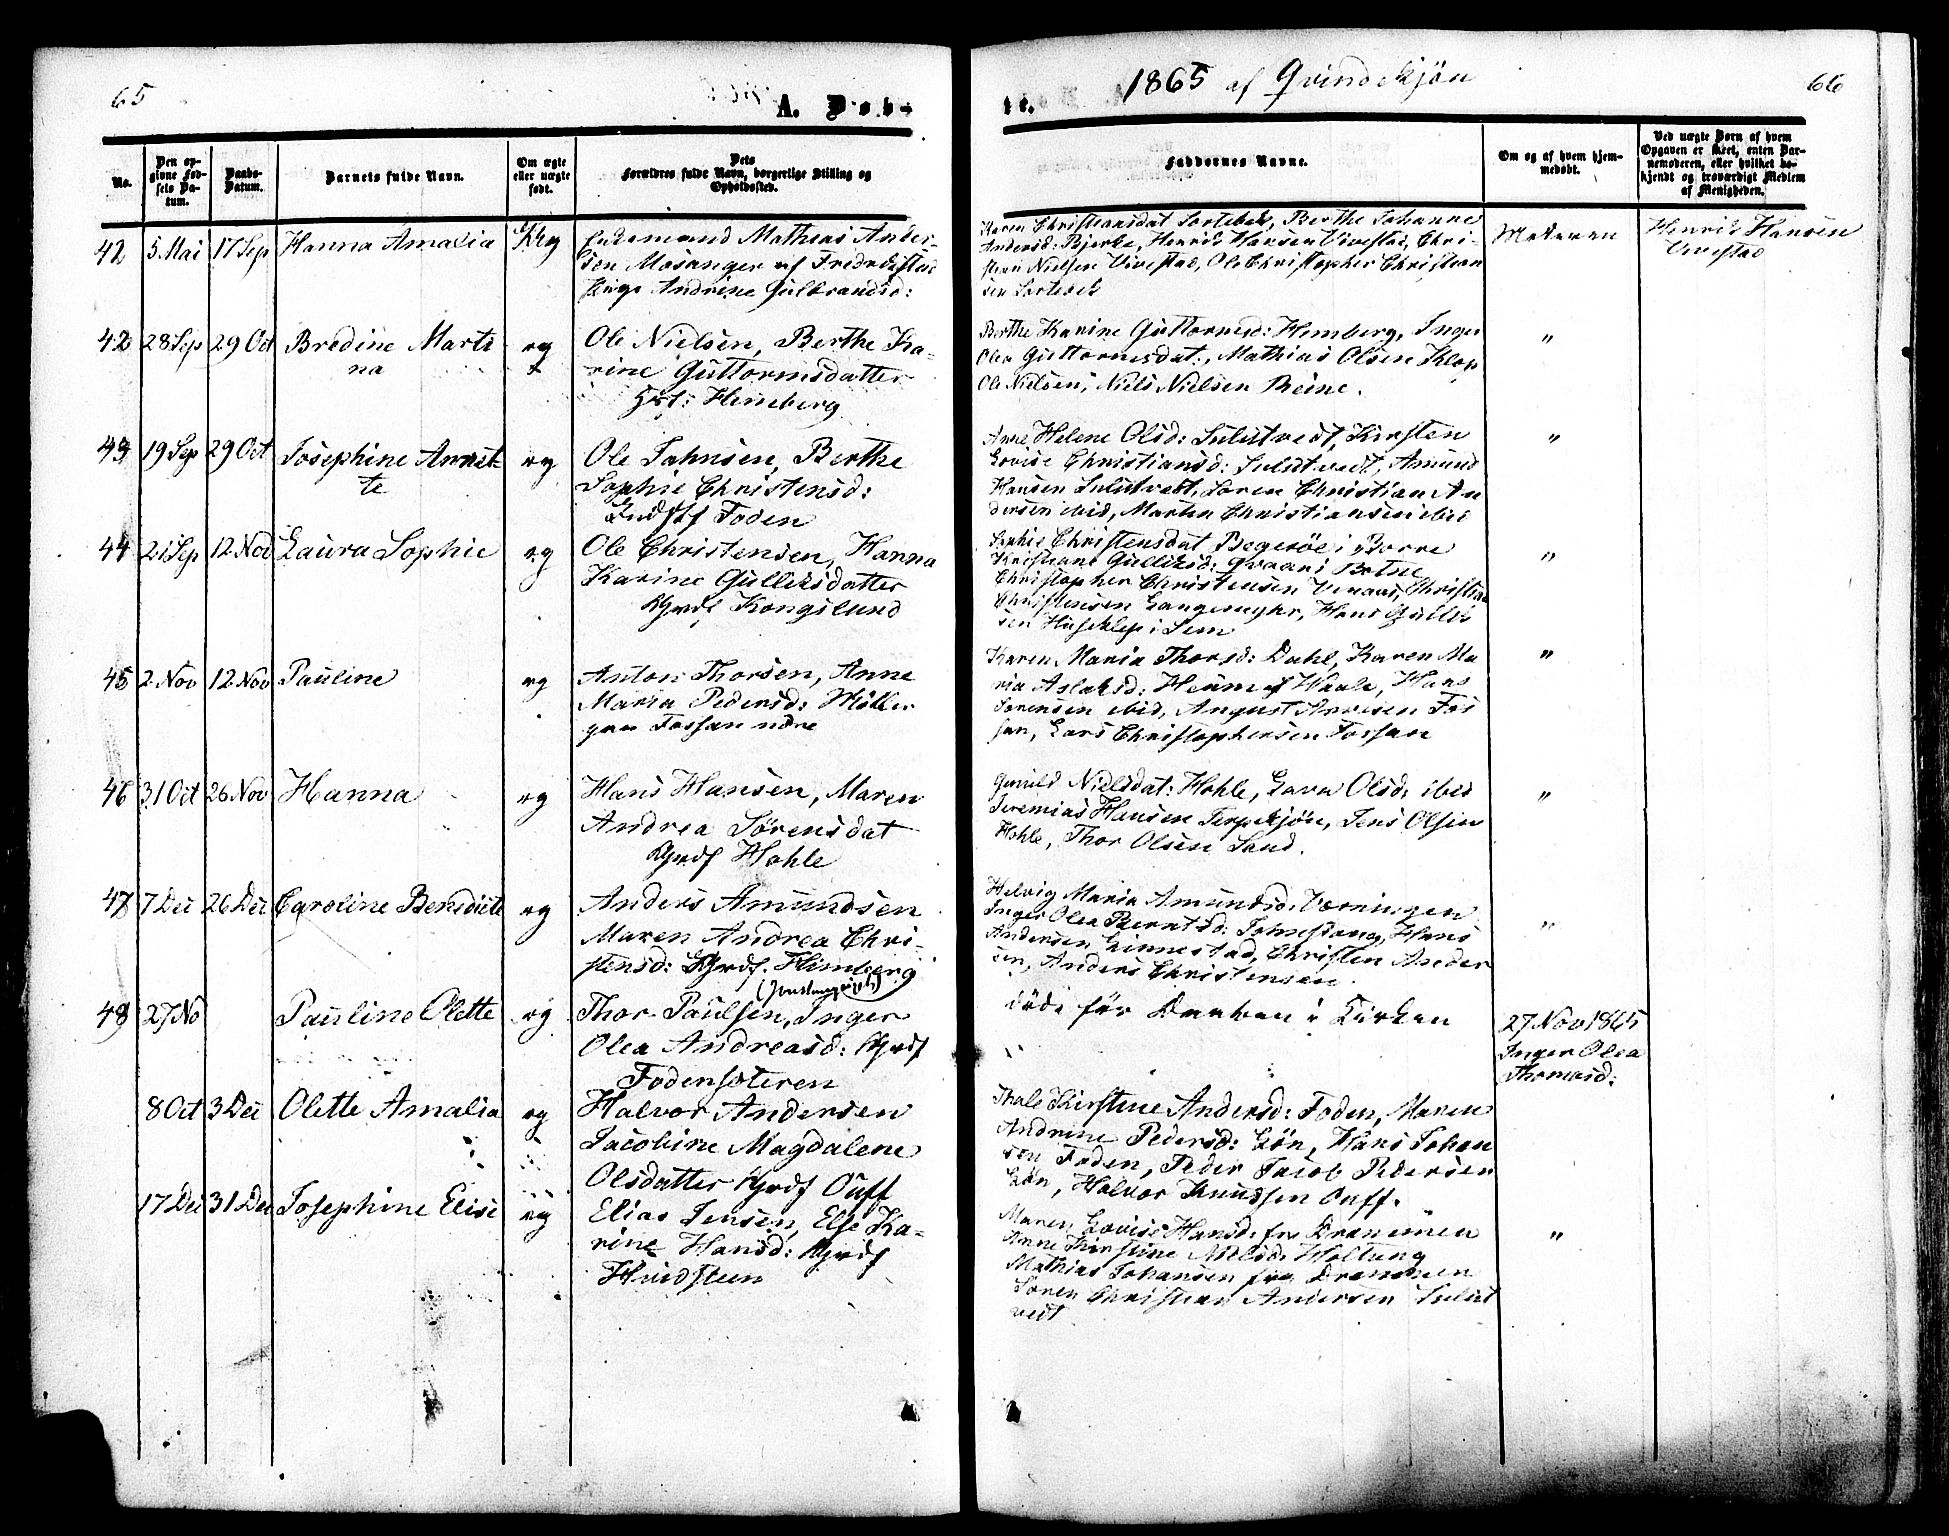 65
A. Døbte.
1865 af Qvindekjøn
66
No.
Den opgivne Fødsels Datum.
Daabs-Datum.
Barnets fulde Navn.
Om ægte eller uægte født.
Dets Forældres fulde Navn, borgerlige Stilling og Opholdssted.
Faddernes Navne.
Om og af hvem hjemmedøbt.
Ved uægte Børn af hvem Opgaven er skeet, enten Barnemoderen, eller hvilket bekjendt og troværdigt Medlem af Menigheden.
42 5 Mai 17 Sep Hanna Amalia
Mathias Ander-
sen Mosanger af Fredrikstad
Andrine Gulbrandsd:
Karen Christiansdat Sortebek, Berthe Johanne
Andersd: Bjerke, Henrik Hansen Vivestad, Chri-
stian Nielsen Vivestad, Ole Christopher Christian
sen Sortebek
Moderen
Henrik Hansen
Vivestad
42 28 Sep 29 Oct Bredine Marti
na
eg
Ole Nielsen, Berthe Ka-
rine Guttormsdatter
Himberg
Berthe Karine Guttormsd: Himberg, Inger
Olea Guttormsdat:, Mathias Olsen Klop
Ole Nielsen, Niels Nielsen Reine.
"
43 19 Sep 29 Oct Josephine Annet-
te
eg
Ole Johnsen, Berthe
Sophie Christensd:
Inds Foden
Anne Helene Olsd: Sulutvedt, Kirsten
Lovise Christiansd: Sulutvedt, Amund
Hansen Sulutvedt, Søren Christian An
dersen ibid, Martin Christiansen ibid
"
44 21 Sep 12 Nov Laura Sophie
eg
Ole Christensen, Hanna
Karine Gulliksdatter
Grdf Kongslund
Sophie Christensdat i Borre
Kristiane Gulliksd: i Botne
Christopher Christensen Christian
Christensen Langemyhr, Hans Gullik
sen i Sem
"
45 2 Nov 12 Nov Pauline
eg
Anton Thorsen, Anne
Maria Pedersd: Møller
Fossan nedre
Karen Maria Thorsd: Dahl, Karen Ma
ria Aslaksd: Heum Hans
Sørensen ibid, August Fos
san, Lars Christophersen Fossan
"
46 31 Oct 26 Nov Hanna
eg
Hans Hansen, Maren
Andrea Sørensdat
Grdf Hohle
Gunild Nielsdat: Hohle, Olsd: ibid
Jeremias Hansen Jerpekjøn, Jens Olsen
Hohle, Thor Olsen Sand.
"
47 7 Dec 26 Dec Caroline Benedicte
eg
Anders Amundsen
Maren Andrea Chri-
stensd: Grdf. Himberg
Helvig Maria Amundsd:
Inger Olea Berntsd: Hans
Andersen Linnestad, Christen Ander
sen, Anders Christensen.
"
48 27 No Pauline Olette
eg
Thor Paulsen, Inger
Olea Andreasd: Grdf
Fodensæteren
døde før Daaben i Kirken
27 Nov 1865
Inger Olea
Thomasd:
8 Oct 3 Dec Olette Amalia
eg
Halvor Andersen
Jacobine Magdalene
Olsdatter Grdf Ouff
Thale Kirstine Andersd: Foden, Maren
Andrine Pedersd: Løn, Hans Johan
sen Foden, Peder Jacob Pedersen
Løn, Halvor Knudsen Ouff.
17 Dec 31 Dec Josephine Elise
eg
Elias Jensen, Else Ka-
rine Hansd: Grdf
Hvidsteen
Maren Lovise Hansd: fra Drammen
Anne Kirstine Nielsd: Holtung
Mathias Johansen fra Drammen
Søren Christian Andersen Sulut
vedt
"